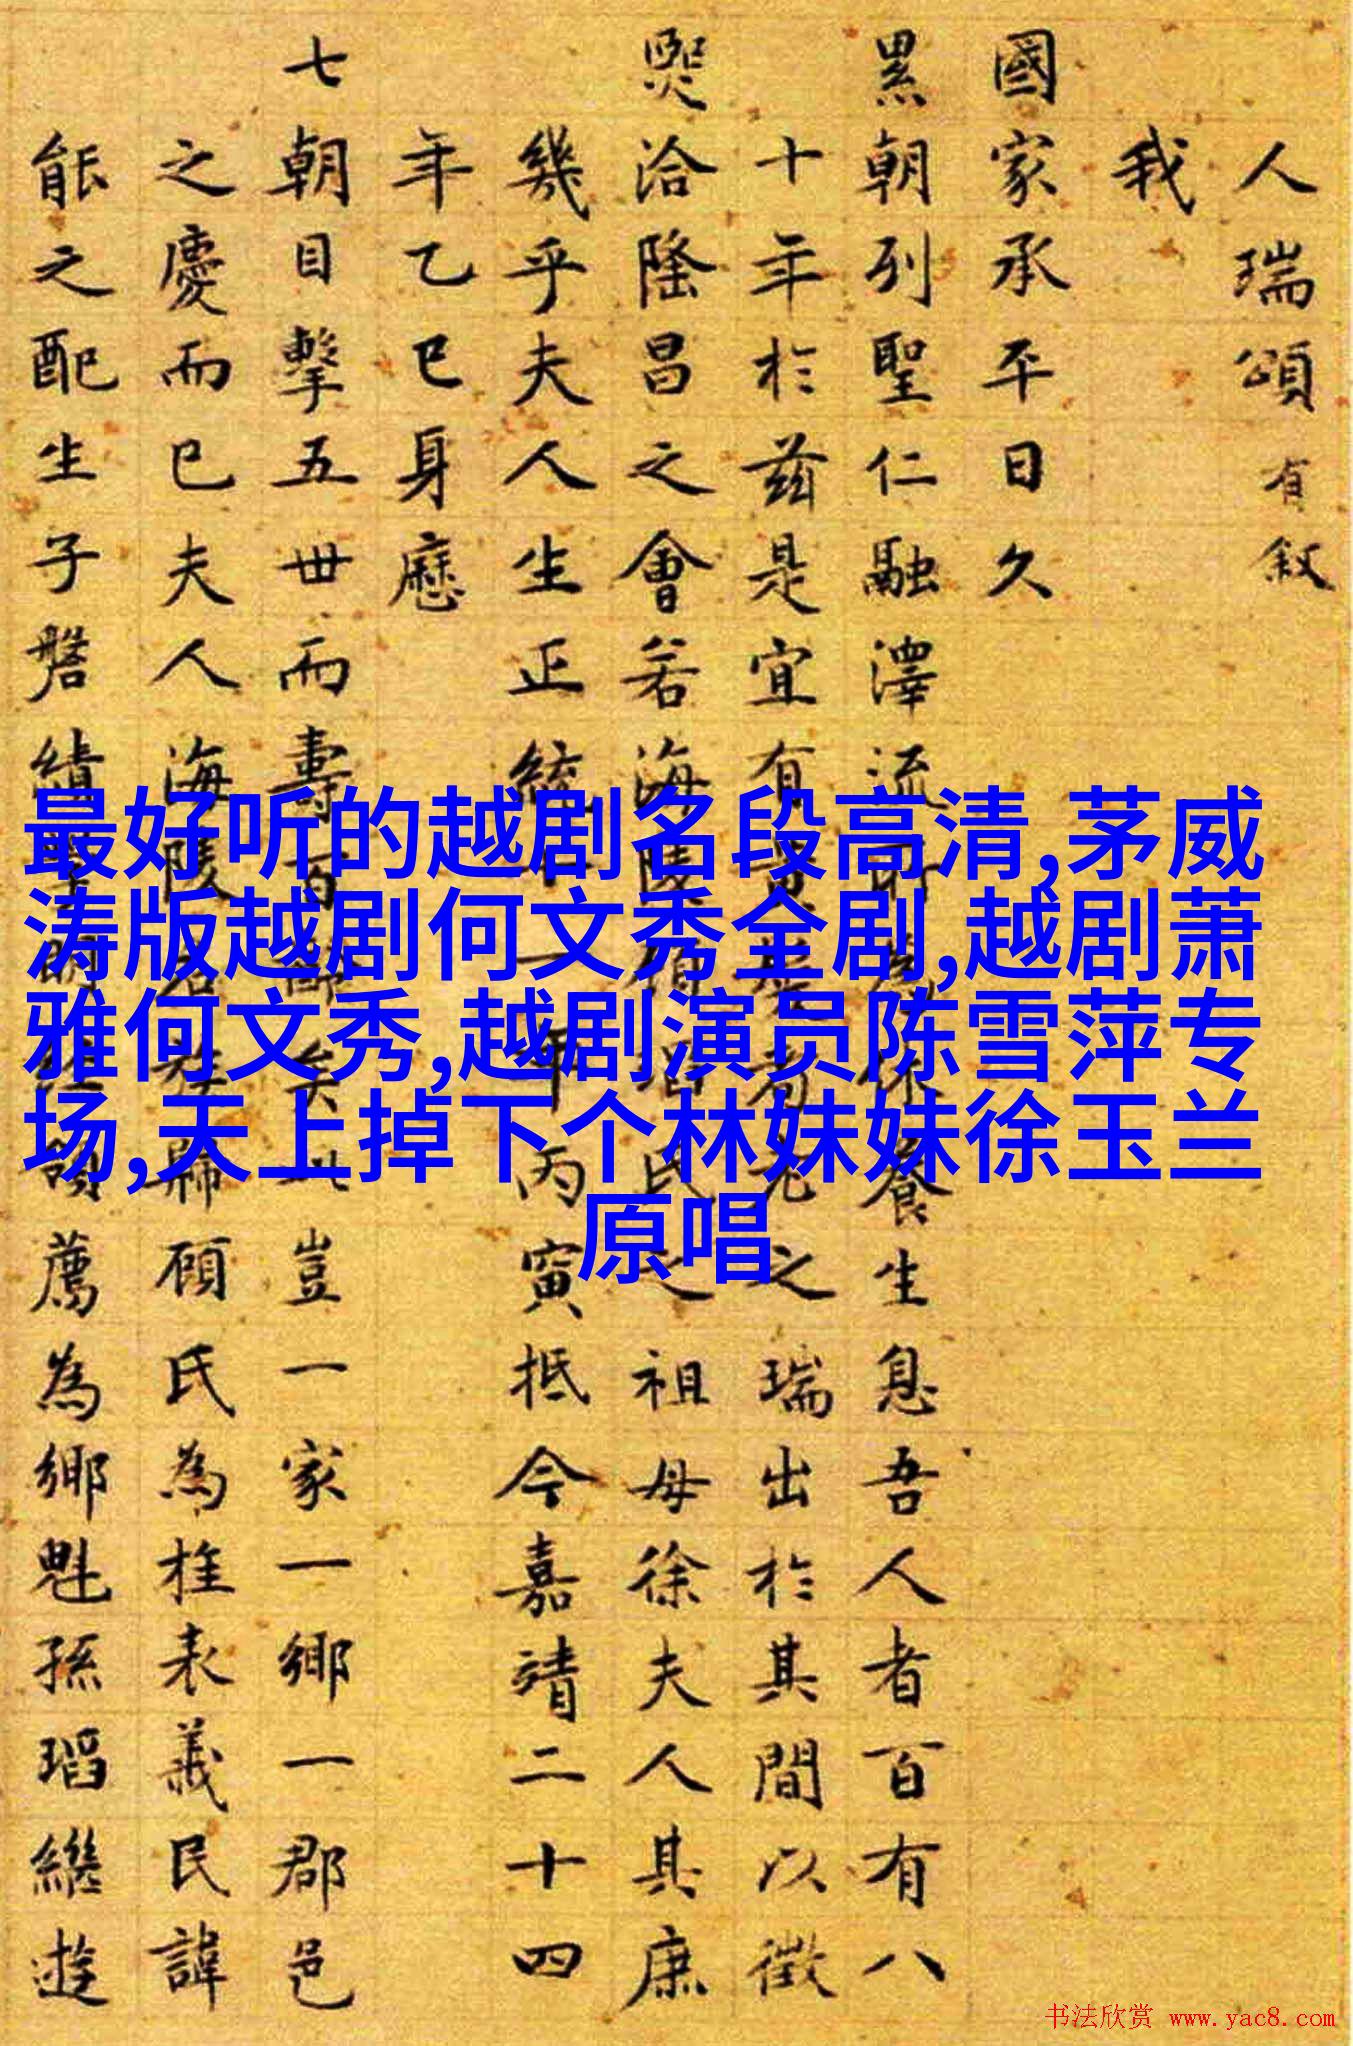 人瑞頌 有叙
我
國家承平日久
累朝列聖仁融澤流休養生息吾人者百有八
十年於兹是宜有之瑞出於其間以徵
熙洽隆昌之會若海陵氏之祖母徐夫人其庶
幾乎夫人生正統十一年丙寅抵今嘉靖二十四
年乙巳身歷
七朝目擊五丗而壽百矣豈一家一鄉一郡邑
之慶而已夫人海陵歸顧氏為桂表義民諱
能之配生子磐績領薦為鄉魁孫瑫繼遊
最好听的越剧名段高清,茅威
涛版越剧何文秀全剧,越剧萧
雅何文秀,越剧演员陈雪萍专
场,天上掉下个林妹妹徐玉兰
原唱
书法欣赏 www.yac8.com